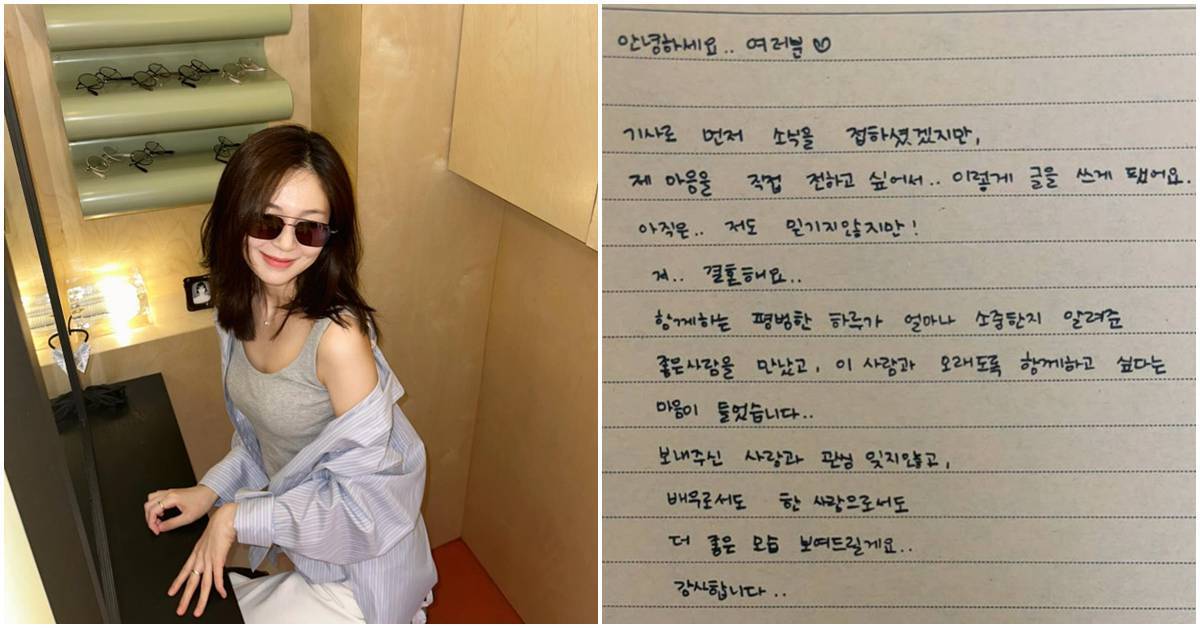 안녕하세요.. 여러분♡
기사로 먼저 소식을 접하셨겠지만,
제 마음을 직접 전하고 싶어서.. 이렇게 글을 쓰게 됐어요.
아직은.. 저도 믿기지않지만!
저.. 결혼해요..
함께하는 평범한 하루가 얼마나 소중한지 알려준
좋은사람을 만났고, 이 사람과 오래도록 함께하고 싶다는
마음이 들었습니다..
보내주신 사랑과 관심 잊지않고,
배우로서도 한 사람으로서도
더 좋은 모습 보여드릴게요..
감사합니다..